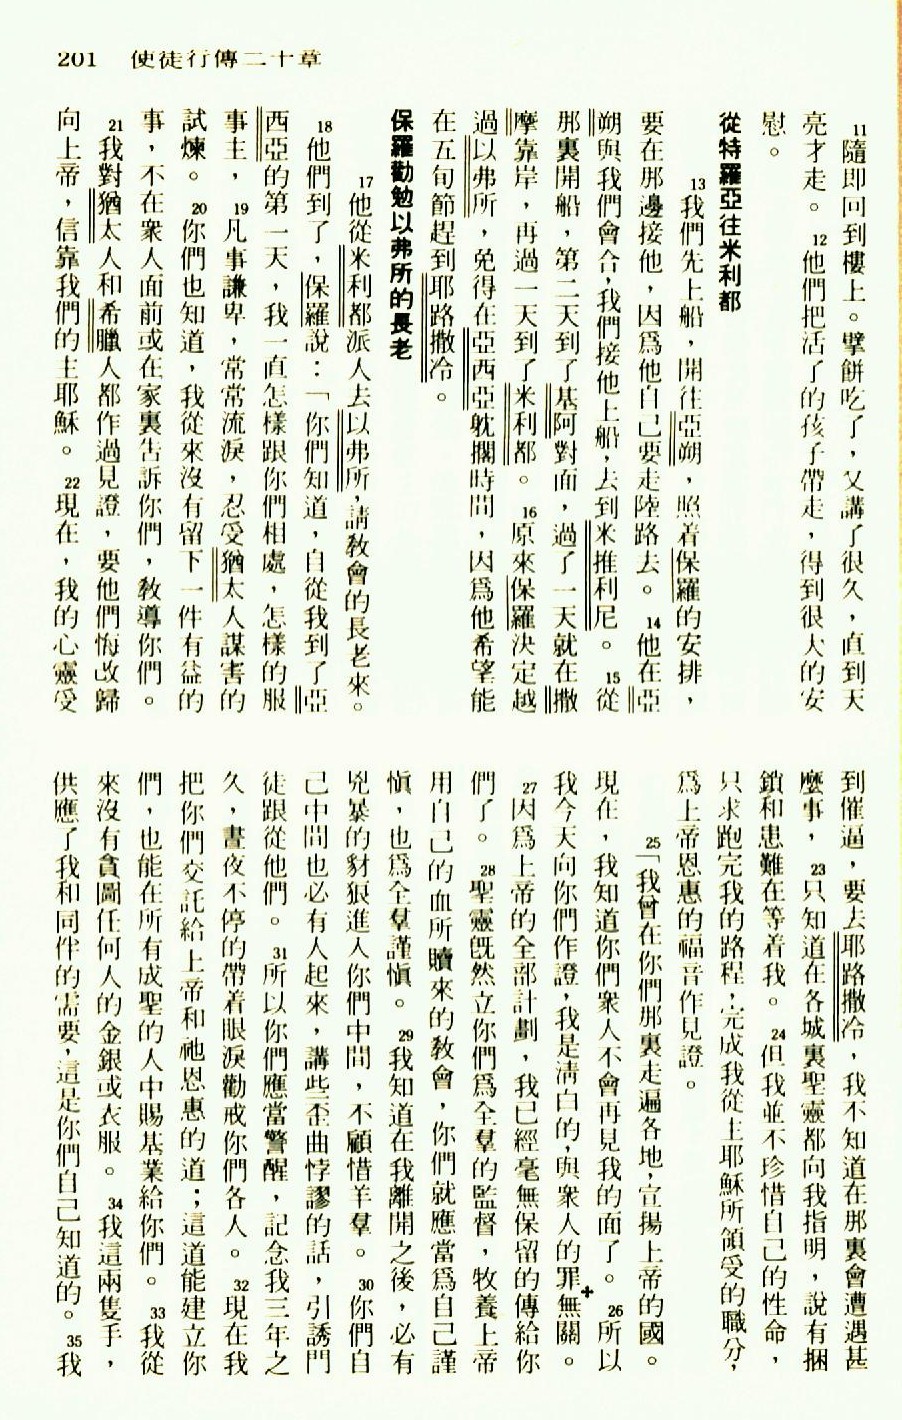 201 使徒行傳二十章
11隨即回到樓上。擘餅吃了，又講了很久，直到天
亮才走。12他們把活了的孩子帶走，得到很大的安
慰。
從特羅亞往米利都
13我們先上船，開往亞朔，照着保羅的安排，
要在那邊接他，因爲他自己要走陸路去。14他在亞
朔與我們會合，我們接他上船，去到米推利尼。15從
那裏開船，第二天到了基阿對面，過了一天就在撒
摩靠岸，再過一天到了米利都。16原來保羅決定越
過以弗所，免得在亞西亞躭擱時間，因爲他希望能
在五旬節趕到耶路撒冷。
保羅勸勉以弗所的長老
17他從米利都派人去以弗所，請敎會的長老來。
18他們到了，保羅說：「你們知道，自從我到了亞
西亞的第一天，我一直怎樣跟你們相處，怎樣的服
事主，19凡事謙卑，常常流淚，忍受猶太人謀害的
試煉。20你們也知道，我從來沒有留下一件有益的
事，不在衆人面前或在家裏告訴你們，敎導你們。
21我對猶太人和希臘人都作過見證，要他們悔改歸
向上帝，信靠我們的主耶穌。22現在，我的心靈受
到催逼，要去耶路撒冷，我不知道在那裏會遭遇甚
麼事，23只知道在各城裏聖靈都向我指明，說有捆
鎖和患難在等着我。24但我並不珍惜自己的性命，
只求跑完我的路程，完成我從主耶穌所領受的職分，
爲上帝恩惠的福音作見證。
25「我曾在你們那裏走遍各地，宣揚上帝的國。
現在，我知道你們衆人不會再見我的面了。26所以
我今天向你們作證，我是淸白的，與衆人的罪+無關。
27因爲上帝的全部計劃，我已經毫無保留的傳給你
們了。28聖靈旣然立你們爲全羣的監督，牧養上帝
用自己的血所贖來的敎會，你們就應當爲自己謹
愼，也爲全羣謹愼。29我知道在我離開之後，必有
兇暴的豺狼進入你們中間，不顧惜羊羣。30你們自
己中間也必有人起來，講些歪曲悖謬的話，引誘門
徒跟從他們。31所以你們應當警醒，記念我三年之
久，晝夜不停的帶着眼淚勸戒你們各人。32現在我
把你們交託給上帝和祂恩惠的道；這道能建立你
們，也能在所有成聖的人中賜基業給你們。33我從
來沒有貪圖任何人的金銀或衣服。34我這兩隻手，
供應了我和同伴的需要，這是你們自己知道的。35我